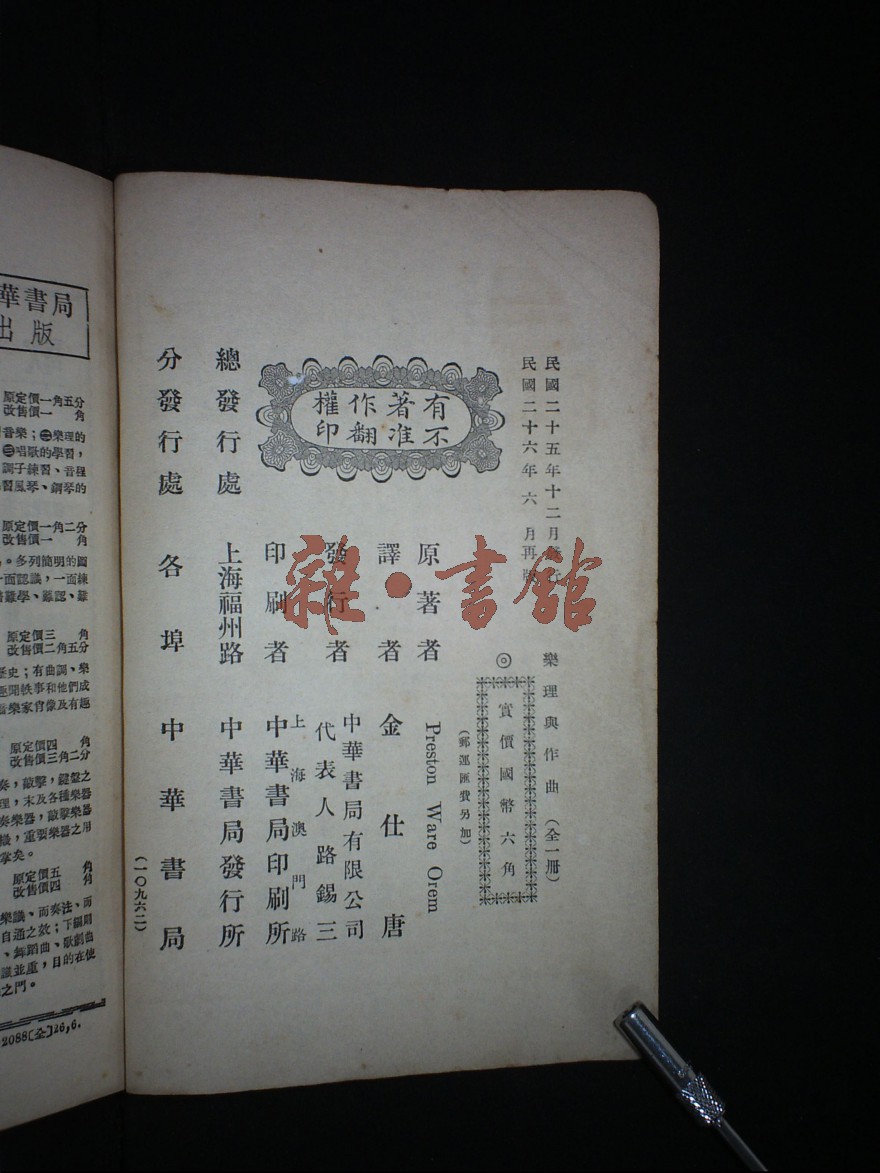 民國二十五年十二月發行
民國二十六年六月再版
樂理與作曲(全一冊)
◎實價國幣六角
(郵運匯費另加)
有著作權
不准翻印
原著者 Preston Ware Orem
譯者 金仕唐
發行者 中華書局有限公司
代表人路錫三
印刷者 上海澳門路
中華書局印刷所
總發行處 上海福州路 中華書局發行所
分發行處 各埠中華書局
(一〇九六二)
雜·書館
華書局
出版
原定價一角五分
改售價一角
習音樂;㊁樂理的
㊂唱歌的學習,
調子練習、音程
習風琴、鋼琴的
原定價一角二分
改售價一角
。多列簡明的圖
一面認識,一面練
難學、難認、難
原定價三角
改售價二角五分
歷史;有曲調、樂
趣聞軼事和他們成
音樂家肖像及有趣
原定價四角
改售價三角二分
奏,敲擊,鍵盤之
理,末及各種樂器
奏樂器,敲擊樂器
,重要樂器之用
掌矣。
原定價五角
改售價四角
樂識、而奏法、而
自通之效;下編闡
、舞蹈曲、歌劇曲
識並重,目的在使
之門。
2088〔全〕26,6.